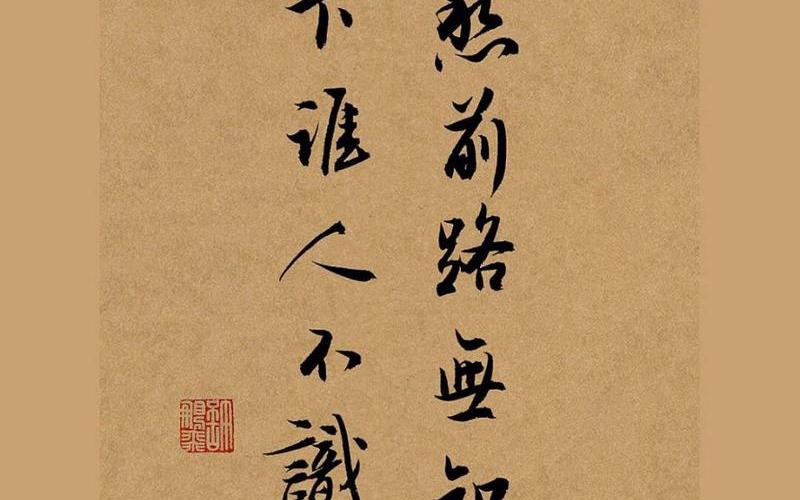 愁前路無知
下誰人不識